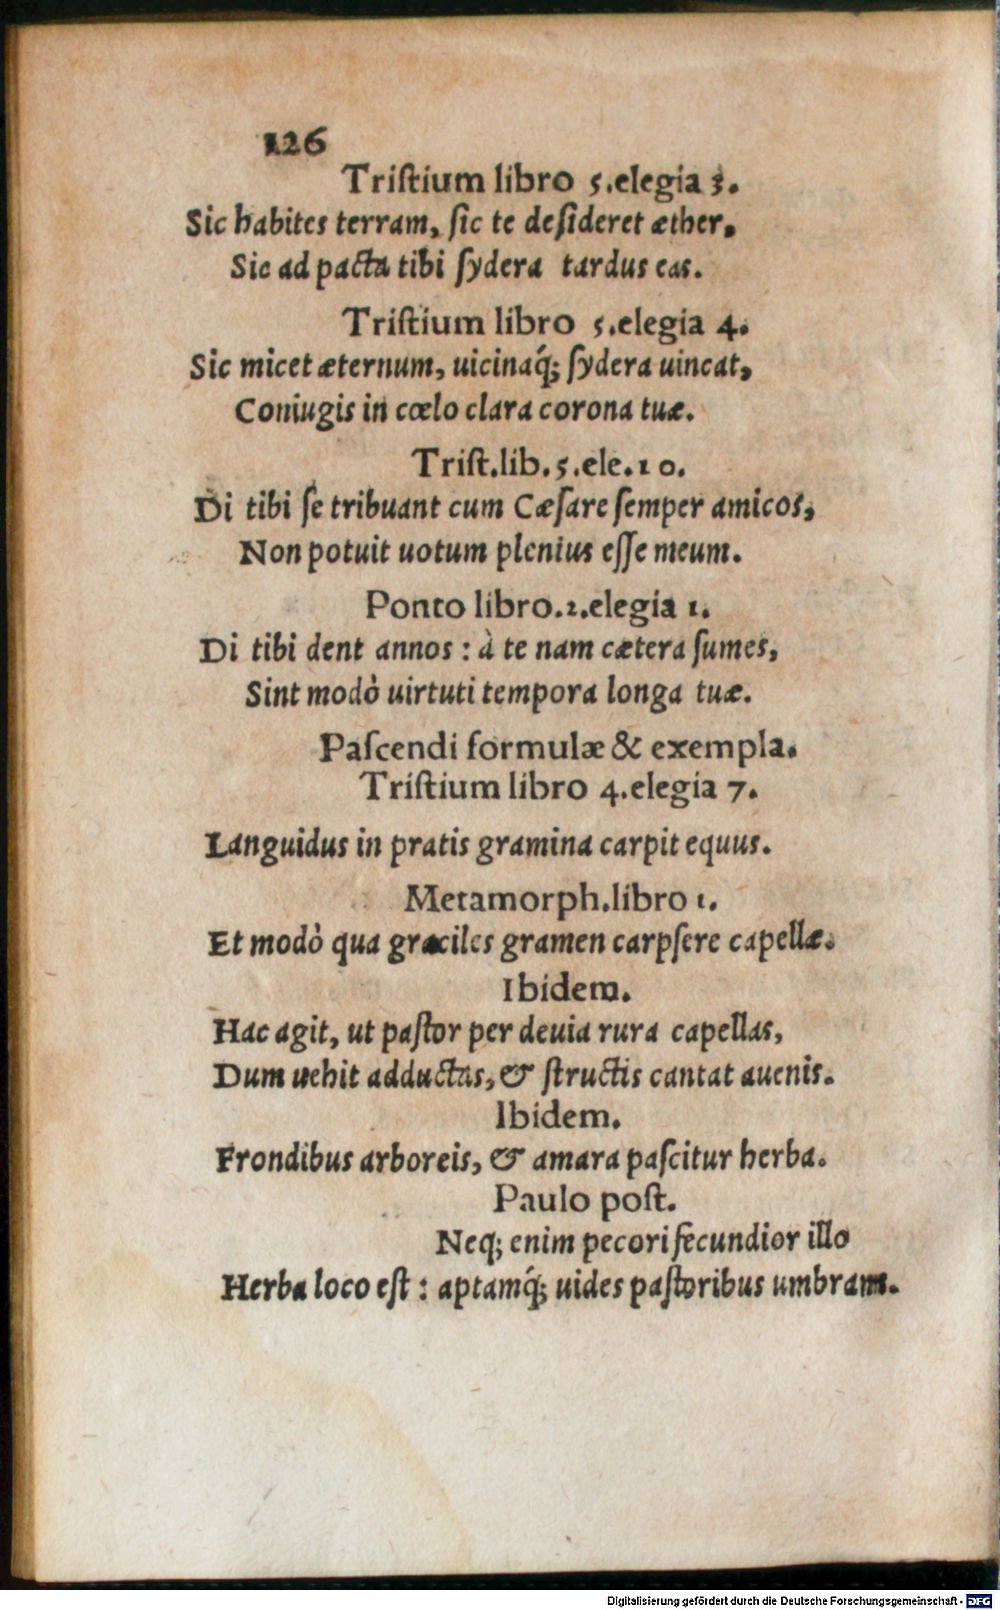 126
Triſtium libro 5.elegia 3.
Sic habites terram, ſic te deſideret æther,
Sic ad pacta tibi ſydera tardus eas.
Triſtium libro 5.elegia 4.
Sic micet æternum, uicinaq́; ſydera uincat,
Coniugis in cœlo clara corona tuæ.
Triſt.lib.5.ele.10.
Di tibi ſe tribuant cum Cæſare ſemper amicos,
Non potuit uotum plenius eſſe meum.
Ponto libro.2.elegia 1.
Di tibi dent annos : à te nam cætera ſumes,
Sint modò uirtuti tempora longa tuæ.
Paſcendi formulæ & exempla.
Triſtium libro 4.elegia 7.
Languidus in pratis gramina carpit equus.
Metamorph.libro 1.
Et modò qua graciles gramen carpſere capellæ.
Ibidem.
Hac agit, ut paſtor per deuia rura capellas,
Dum uehit adductas, & ſtructis cantat auenis.
Ibidem.
Frondibus arboreis, & amara paſcitur herba.
Paulo poſt.
Neq; enim pecori fecundior illo
Herba loco eſt : aptamq́; uides paſtoribus umbram.
Digitalisierung gefördert durch die Deutsche Forschungsgemeinschaft - DFG